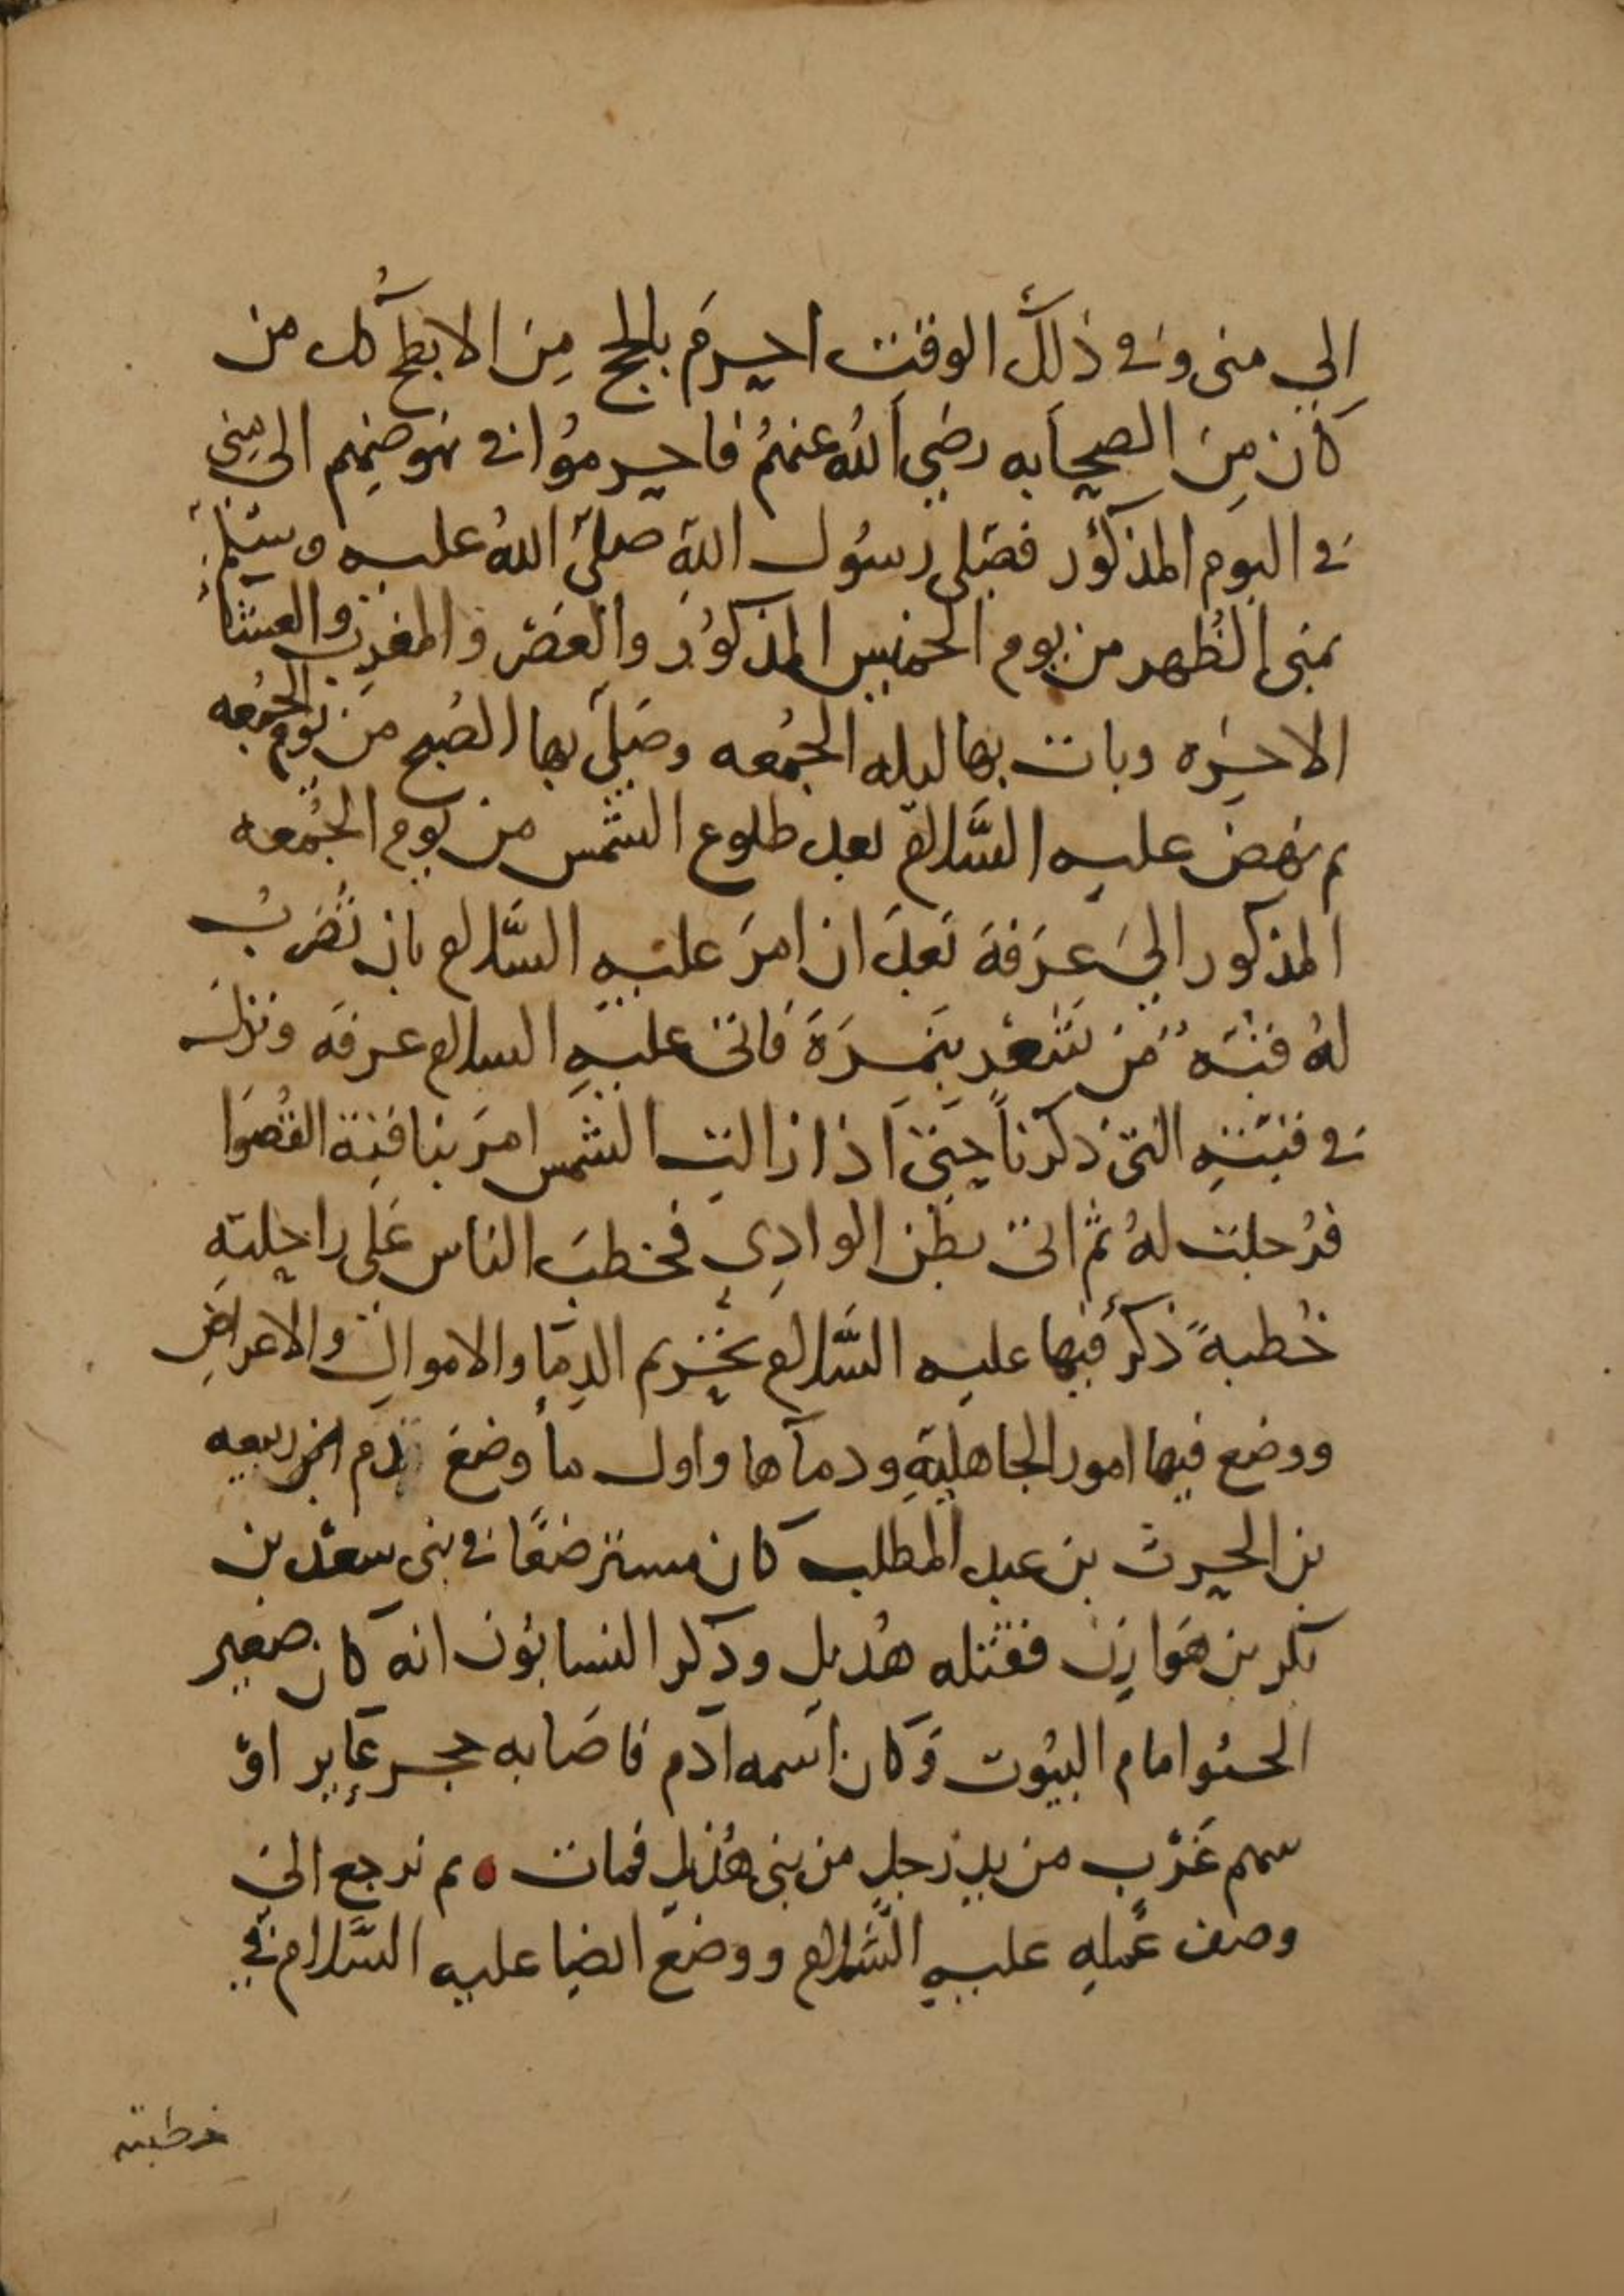 إلي منى وفي ذلك الوقت احرمَ بالحج مِنَ الابطح كُل من
كان مِنَ الصحابه رضي اللهُ عنهُم فاحرمُوا في نهوضِهِم الى مِنى
في اليوم المذكُور فصَلى رسُول اللهِ صلى اللهُ عليه وسَلم
بمنى الظُهر من يوم الخميس المذكوُر والعَصْر والمغرِب والعشآء
الاخِرَه وبات بها ليله الجمُعه وصَلى بها الصُبح من يوم الجمُعه
ثم نهض عليه السَّلام بعد طلوع الشمس من يوم الجُمعه
المذكور الىَ عَرَفةَ بَعدَ ان امرَ عليهِ السَّلام بان تُضرَبُ
لهُ قبْهٌ مَن شَعْرٍ بنَمِرَةَ فاتى عليهِ السلام عرفَه ونزلَ
في قبتهِ التى ذكرناَ حتىَ اذا زالتِ الشمس امرَ بناقتِهِ القُصَوَا
فرُحلت لهُ ثم اتى بطنَ الوادِي فخطبَ الناس عَلى راحِلتهِ
خُطبةً ذكرَ فيها عليه السَّلام تحريم الدِمآ والاموال والاعراضِ
ووضع فيها امور الجاهليةِ ودمآها واول ما وضع دم ابن ربيعه
بن الحرث بن عبد المطلب كان مسترضعًا في بنى سعْد بن
بكر بن هَوازِن فقتله هُذيل وذكر النسابُون انه كان صغير
الحبُوا امام البيُوت وَكان اسمه ادم فاصَابه حجر عَاير اوْ
سهم غَرْبٍ من يدِ رَجلٍ من بنى هُذيلٍ فمات ثم نرجع الى
وصف عَملِهِ عليهِ السَّلام ووضعَ ايضِا عليه السَّلام في
خطبته